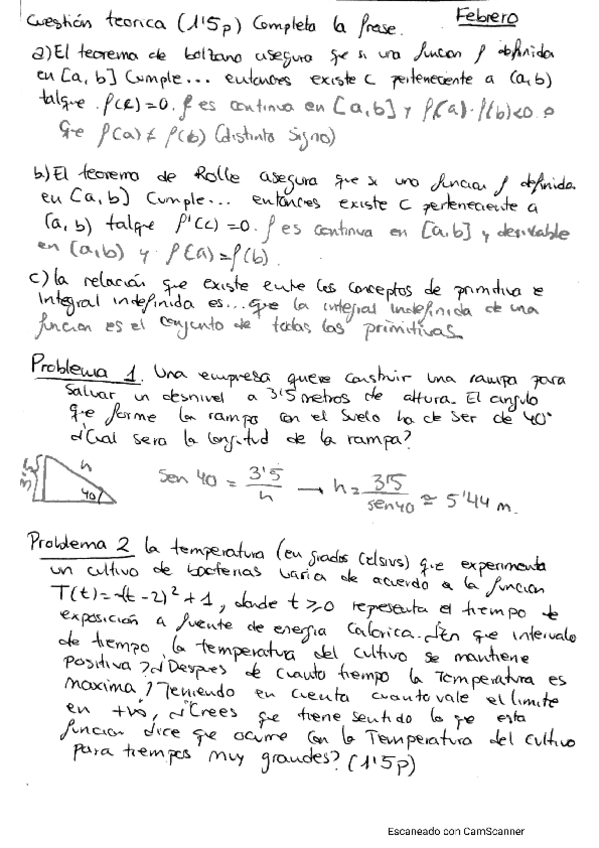 Cuestión teorica (1'5p) Completa la frase. Febrero
a) El teorema de bolzano asegura que si una funcion f definida
en [a, b] Cumple... entonces existe c perteneciente a (a, b)
tal que f(c) = 0. f es continua en [a, b] y f(a) · f(b) < 0 o
que f(a) ≠ f(b) (distinto signo)
b) El teorema de Rolle asegura que si una funcion f definida
en [a, b] Cumple... entonces existe c perteneciente a
(a, b) tal que f'(c) = 0. f es continua en [a, b] y derivable
en (a, b) y f(a) = f(b).
c) la relación que existe entre los conceptos de primitiva e
Integral indefinida es... que la integral indefinida de una
funcion es el conjunto de todas las primitivas.
Problema 1. Una empresa quiere construir una rampa para
salvar un desnivel a 3'5 metros de altura. El angulo
que forme la rampa con el suelo ha de ser de 40°
¿Cual sera la longitud de la rampa?
h
40°
sen 40 = 3'5/h → h = 3'5/sen40 ≅ 5'44 m.
Problema 2 la temperatura (en grados Celsius) que experimenta
un cultivo de bacterias varia de acuerdo a la funcion
T(t) = -(t - 2)² + 1, donde t ≥ 0 representa el tiempo de
exposición a fuente de energia Calorica. ¿En que intervalo
de tiempo la temperatura del cultivo se mantiene
positiva? ¿Despues de cuanto tiempo la temperatura es
maxima? Teniendo en cuenta cuanto vale el limite
en +∞, ¿Crees que tiene sentido lo que esta
funcion dice que ocurre con la Temperatura del cultivo
para tiempos muy grandes? (1'5p)
Escaneado con CamScanner